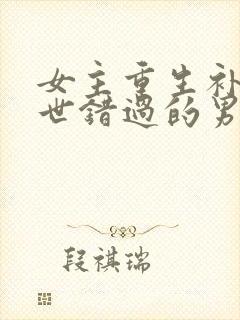 女主重生补
世错过的男
段祺瑞